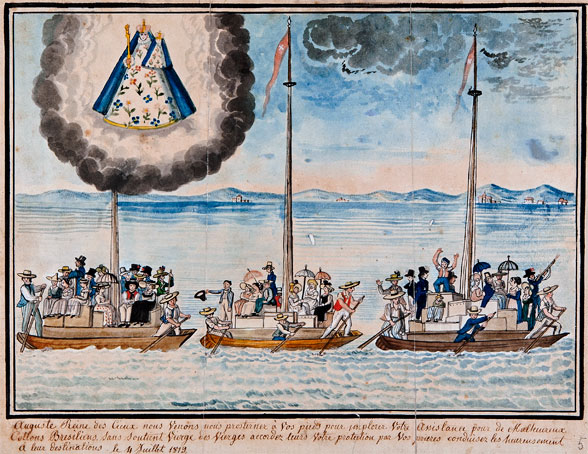 Auguste Reine des Cieux nous venons nous prosterner à Vos pieds pour implorer Votre Assistance pour de Malheureux
Collons Bresiliens, sans soutient Vierge des Vierges accordez leurs Votre protection par Vos prieres conduisez les heureusement
à leur destinations. le 4 Juillet 1819.
5